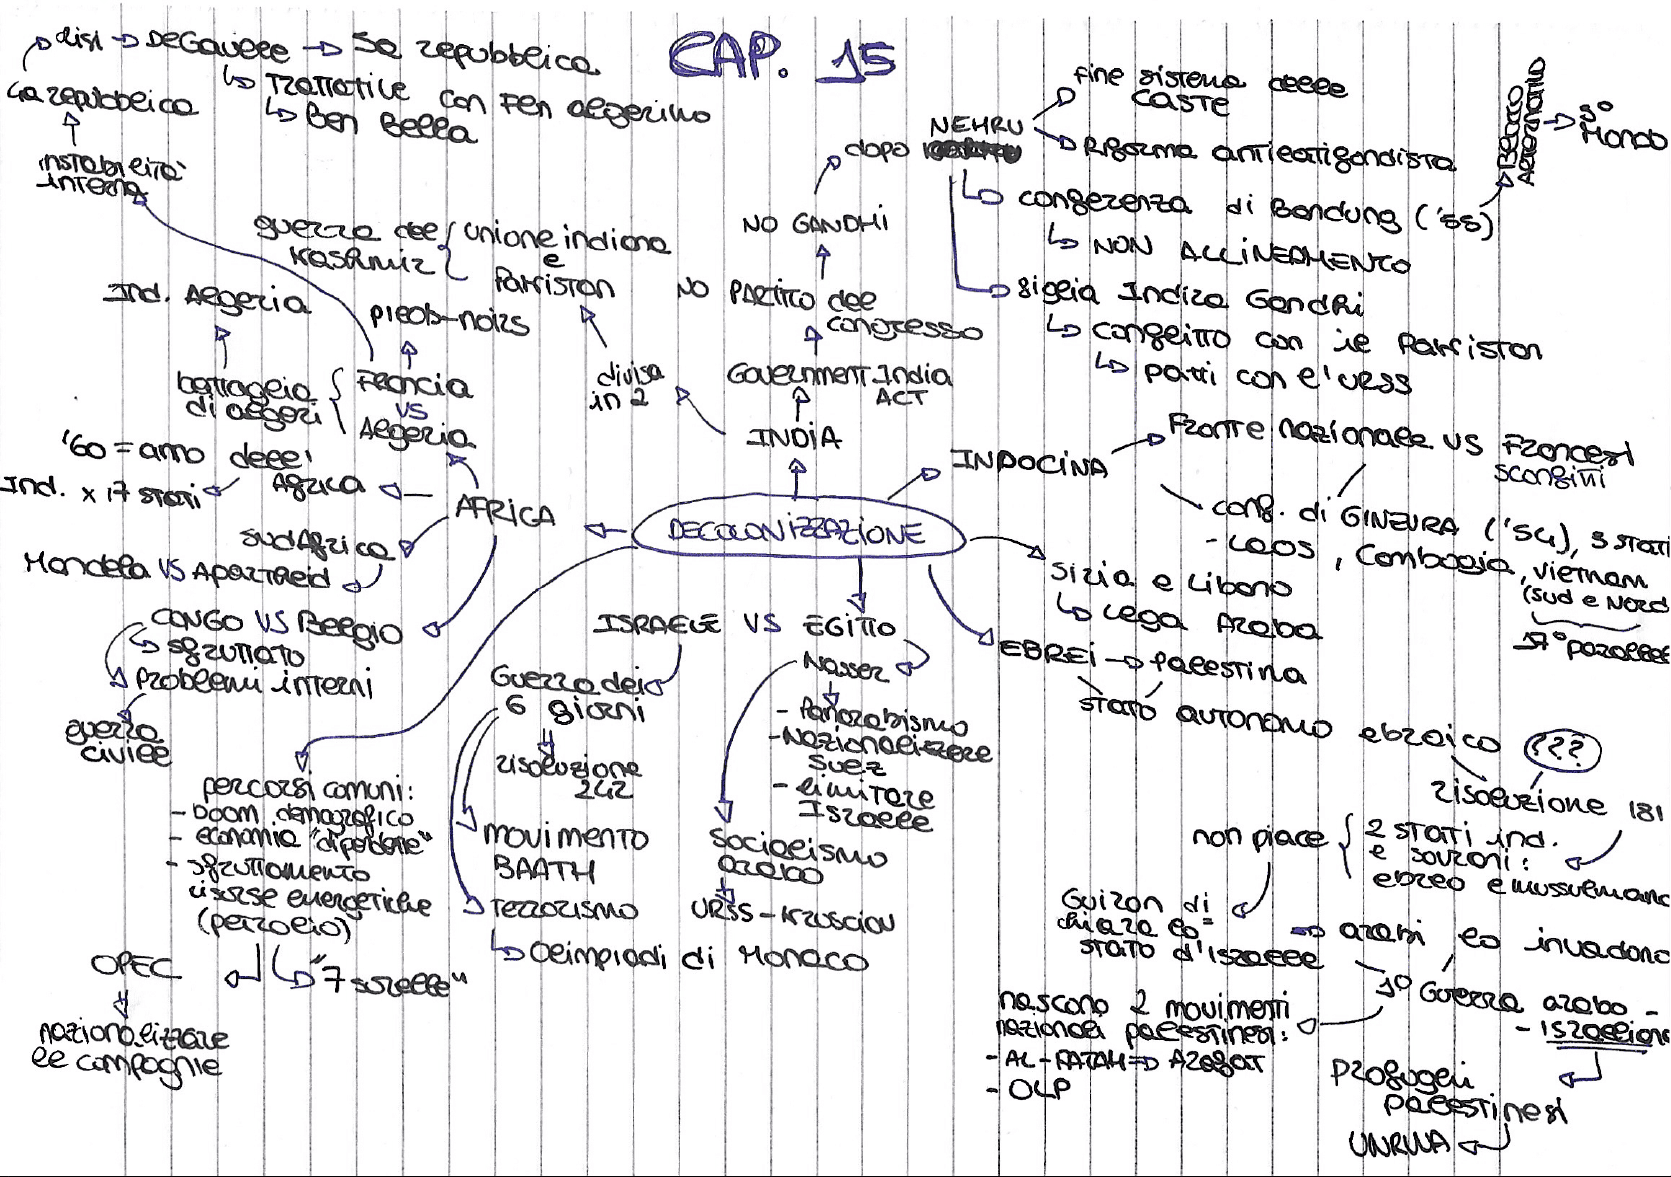 CAP. 15
crisi → De Gaulle → 5a repubblica
↳ Trattative con Fln algerino
↳ Ben Bella
4a repubblica
instabilità
interna
guerra del
Kashmir
Unione indiana
e
Pakistan
Ind. Algeria
pieds-noirs
battaglia
di algeri
Francia
vs
Algeria
divisa
in 2
'60 = anno dell'
Africa
Ind. x 17 stati
AFRICA
SudAfrica
Mandela VS Apartheid
CONGO VS Belgio
↳ sfruttato
Problemi interni
guerra
civile
NEHRU
dopo
fine sistema delle
CASTE
Riforma antilatifondista
NO GANDHI
conferenza di Bandung ('55)
↳ NON ALLINEAMENTO
BLOCCO
ALTERNATIVO
→ 3°
Mondo
NO PARTITO del
congresso
figlia Indira Gandhi
↳ conflitto con il Pakistan
↳ patti con l'URSS
Government India
ACT
INDIA
INDOCINA
Fronte nazionale VS Francesi
sconfitti
conf. di GINEVRA ('54), 3 stati
- LAOS, Cambogia, Vietnam
(sud e Nord
17° parallel
DECOLONIZZAZIONE
Siria e Libano
↳ Lega Araba
EBREI → Palestina
stato autonomo ebraico ???
risoluzione 181
non piace
2 stati ind.
e sovrani:
ebreo e mussulmano
Gurion di
chiara lo
stato d'Israele
→ arabi lo invadono
1° Guerra arabo -
- israeliana
nascono 2 movimenti
nazionali palestinesi:
- AL-FATAH → Arafat
- OLP
Profughi
palestinesi
UNRWA
ISRAELE VS EGITTO
Nasser
- Panarabismo
- Nazionalizzare
Suez
- limitare
Israele
Socialismo
arabo
URSS - Krusciov
Guerra dei
6 giorni
risoluzione
242
movimento
BAATH
Terrorismo
↳ Olimpiadi di Monaco
percorsi comuni:
- boom demografico
- economia "dipendente"
- sfruttamento
risorse energetiche
(petrolio)
"7 sorelle"
OPEC
nazionalizzare
le compagnie